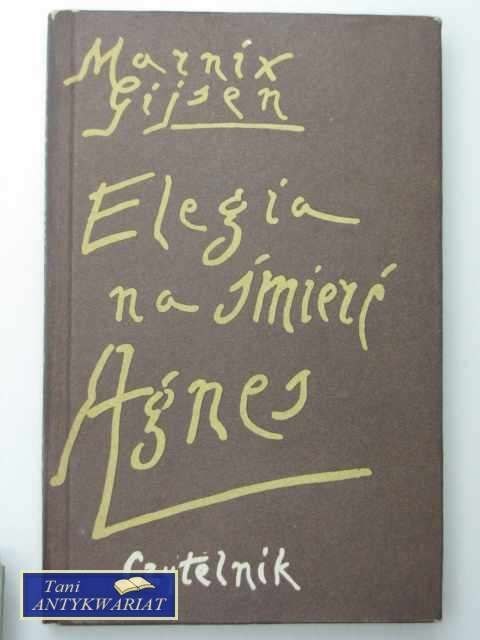 Marnix
Gijsen
Elegia
na śmierć
Agnes
Czytelnik
Tani
ANTYKWARIAT